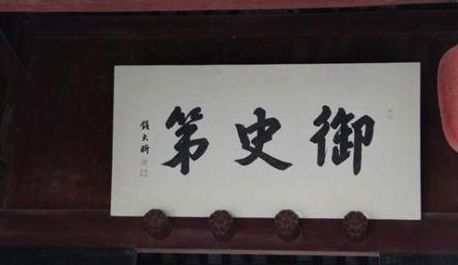 御史第
钱大昕